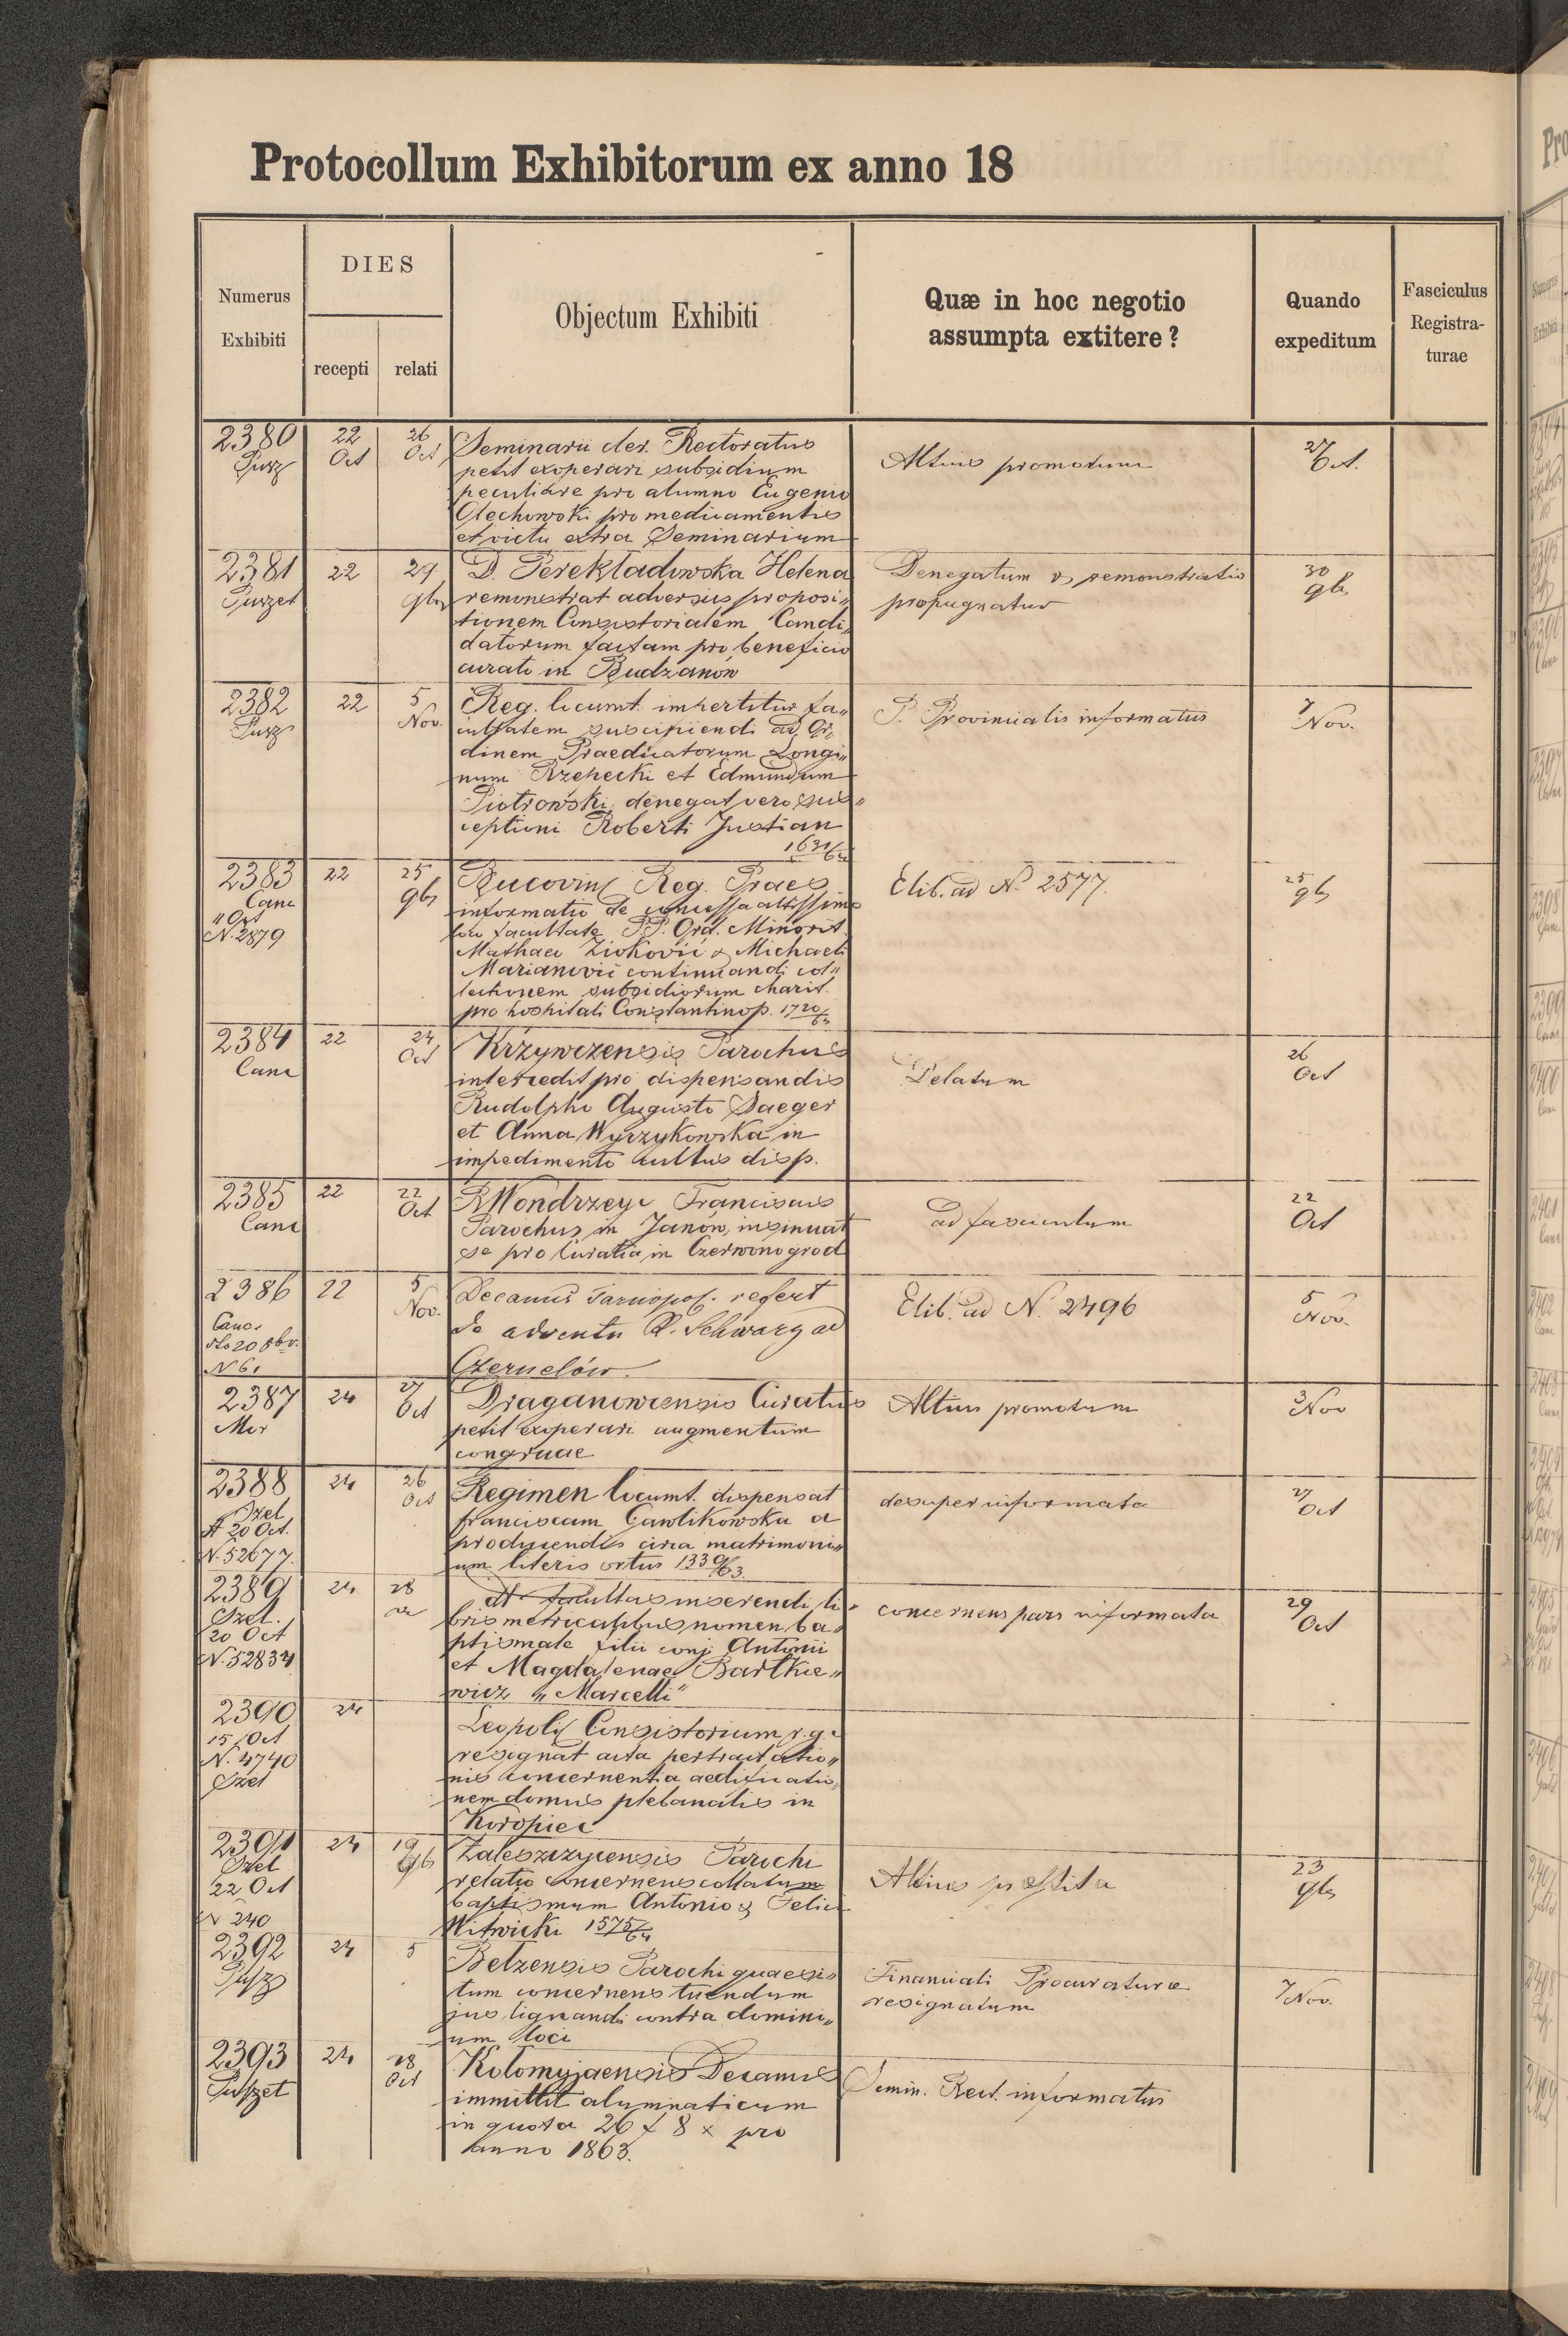 Protocollum Exhibitorum ex anno 18
Numerus Exhibiti
DIES
recepti relati
Objectum Exhibiti
Quæ in hoc negotio
assumpta extitere?
Quando
expeditum
Fasciculus
Registra-
turae
2380 22 Oct 26 Oct
Seminarii cler. Rectoratus
petit exoperari subsidium
peculiare pro alumno Eugenio
Olechowski pro medicamentis
et victu extra Seminarium
Altius promotum
27 Oct.
2381 22 29 9br
D. Perekładowska Helena
remonstrat adversus proposi„
tionem Consistorialem Candi„
datorum factam pro beneficio
curato in Budzanów
Denegatum & remonstratio
propugnatur
30 9br
2382 22 5 Nov.
Reg. locumt. impertitur fa„
cultatem suscipiendi ad Or„
dinem Praedicatorum Longi„
num Rzepecki et Edmundum
Piotrowski, denegat vero sus„
ceptioni Roberti Justian
1631/64
P. Provincialis informatus
7 Nov.
2383 22 25 9br
Canc
11 Oct
N. 2879
Bucovin Reg. Praes
informatio de concessa altissimo
loco facultate P.P. Ord. Minorit.
Mathaeo Živković & Michaeli
Marianović continuandi col„
lectionem subsidiorum charit.
pro hospitali Constantinop. 1720/64
Elib. ad N. 2577.
25 9br
2384 22 24 Oct
Canc
Krzywczensis Parochus
intercedit pro dispensandis
Rudolpho Augusto Saeger
et Anna Wyrzykowska in
impedimento cultus disp.
Delatum
26 Oct
2385 22 22 Oct
Canc
R Wondrzeyc Franciscus
Parochus in Janów, insinuat
se pro Curatia in Czerwonogrod
ad fasciculum
22 Oct
2386 22 5 Nov.
Canc.
dto 20 8br.
N 61
Decanus Tarnopol. refert
de adventu R. Schwarz ad
Czernelów
Elib. ad N. 2496
5 Nov.
2387 24 27 Oct
Mer
Draganowcensis Curatus
petit exoperari augmentum
congruae
Altius promotum
3 Nov
2388 24 26 Oct
Szel
dt 20 Oct.
N. 52677.
Regimen locumt. dispensat
franciscam Gawlikowska a
producendis circa matrimoni„
um literis ortus 1339/63.
desuper informata
27 Oct
2389 24 28
Szel.
20 Oct
N. 52834
dtt facultas inserendi li„
bris metricalibus nomen ba„
ptismale filii conj. Antonii
et Magdalenae Bartkie„
wicz „Marcelli"
concernens pars informata
29 Oct
2390 24
15 Oct
N. 4740
Szel
Leopol Consistorium r. g. c
resignat acta pertractatio„
nis concernentia aedificatio„
nem domus plebanalis in
Koropiec
2391 24 19 9b
Szel
22 Oct
N 240
Zaleszczycensis Parochi
relatio concernens collatum
baptismum Antonio & Felici
Witwicki 1575/64
Altius
23 9br
2392 24 5
Belzensis Parochi quaesi„
tum concernens tuendum
jus lignandi contra domini„
um loci
Financiali Procuraturae
resignatum
7 Nov.
2393 24 28 Oct
Kołomyjaensis Decanus
immittit alumnaticum
in quota 26 f 8 x pro
anno 1863.
Semin. Rect. informatus